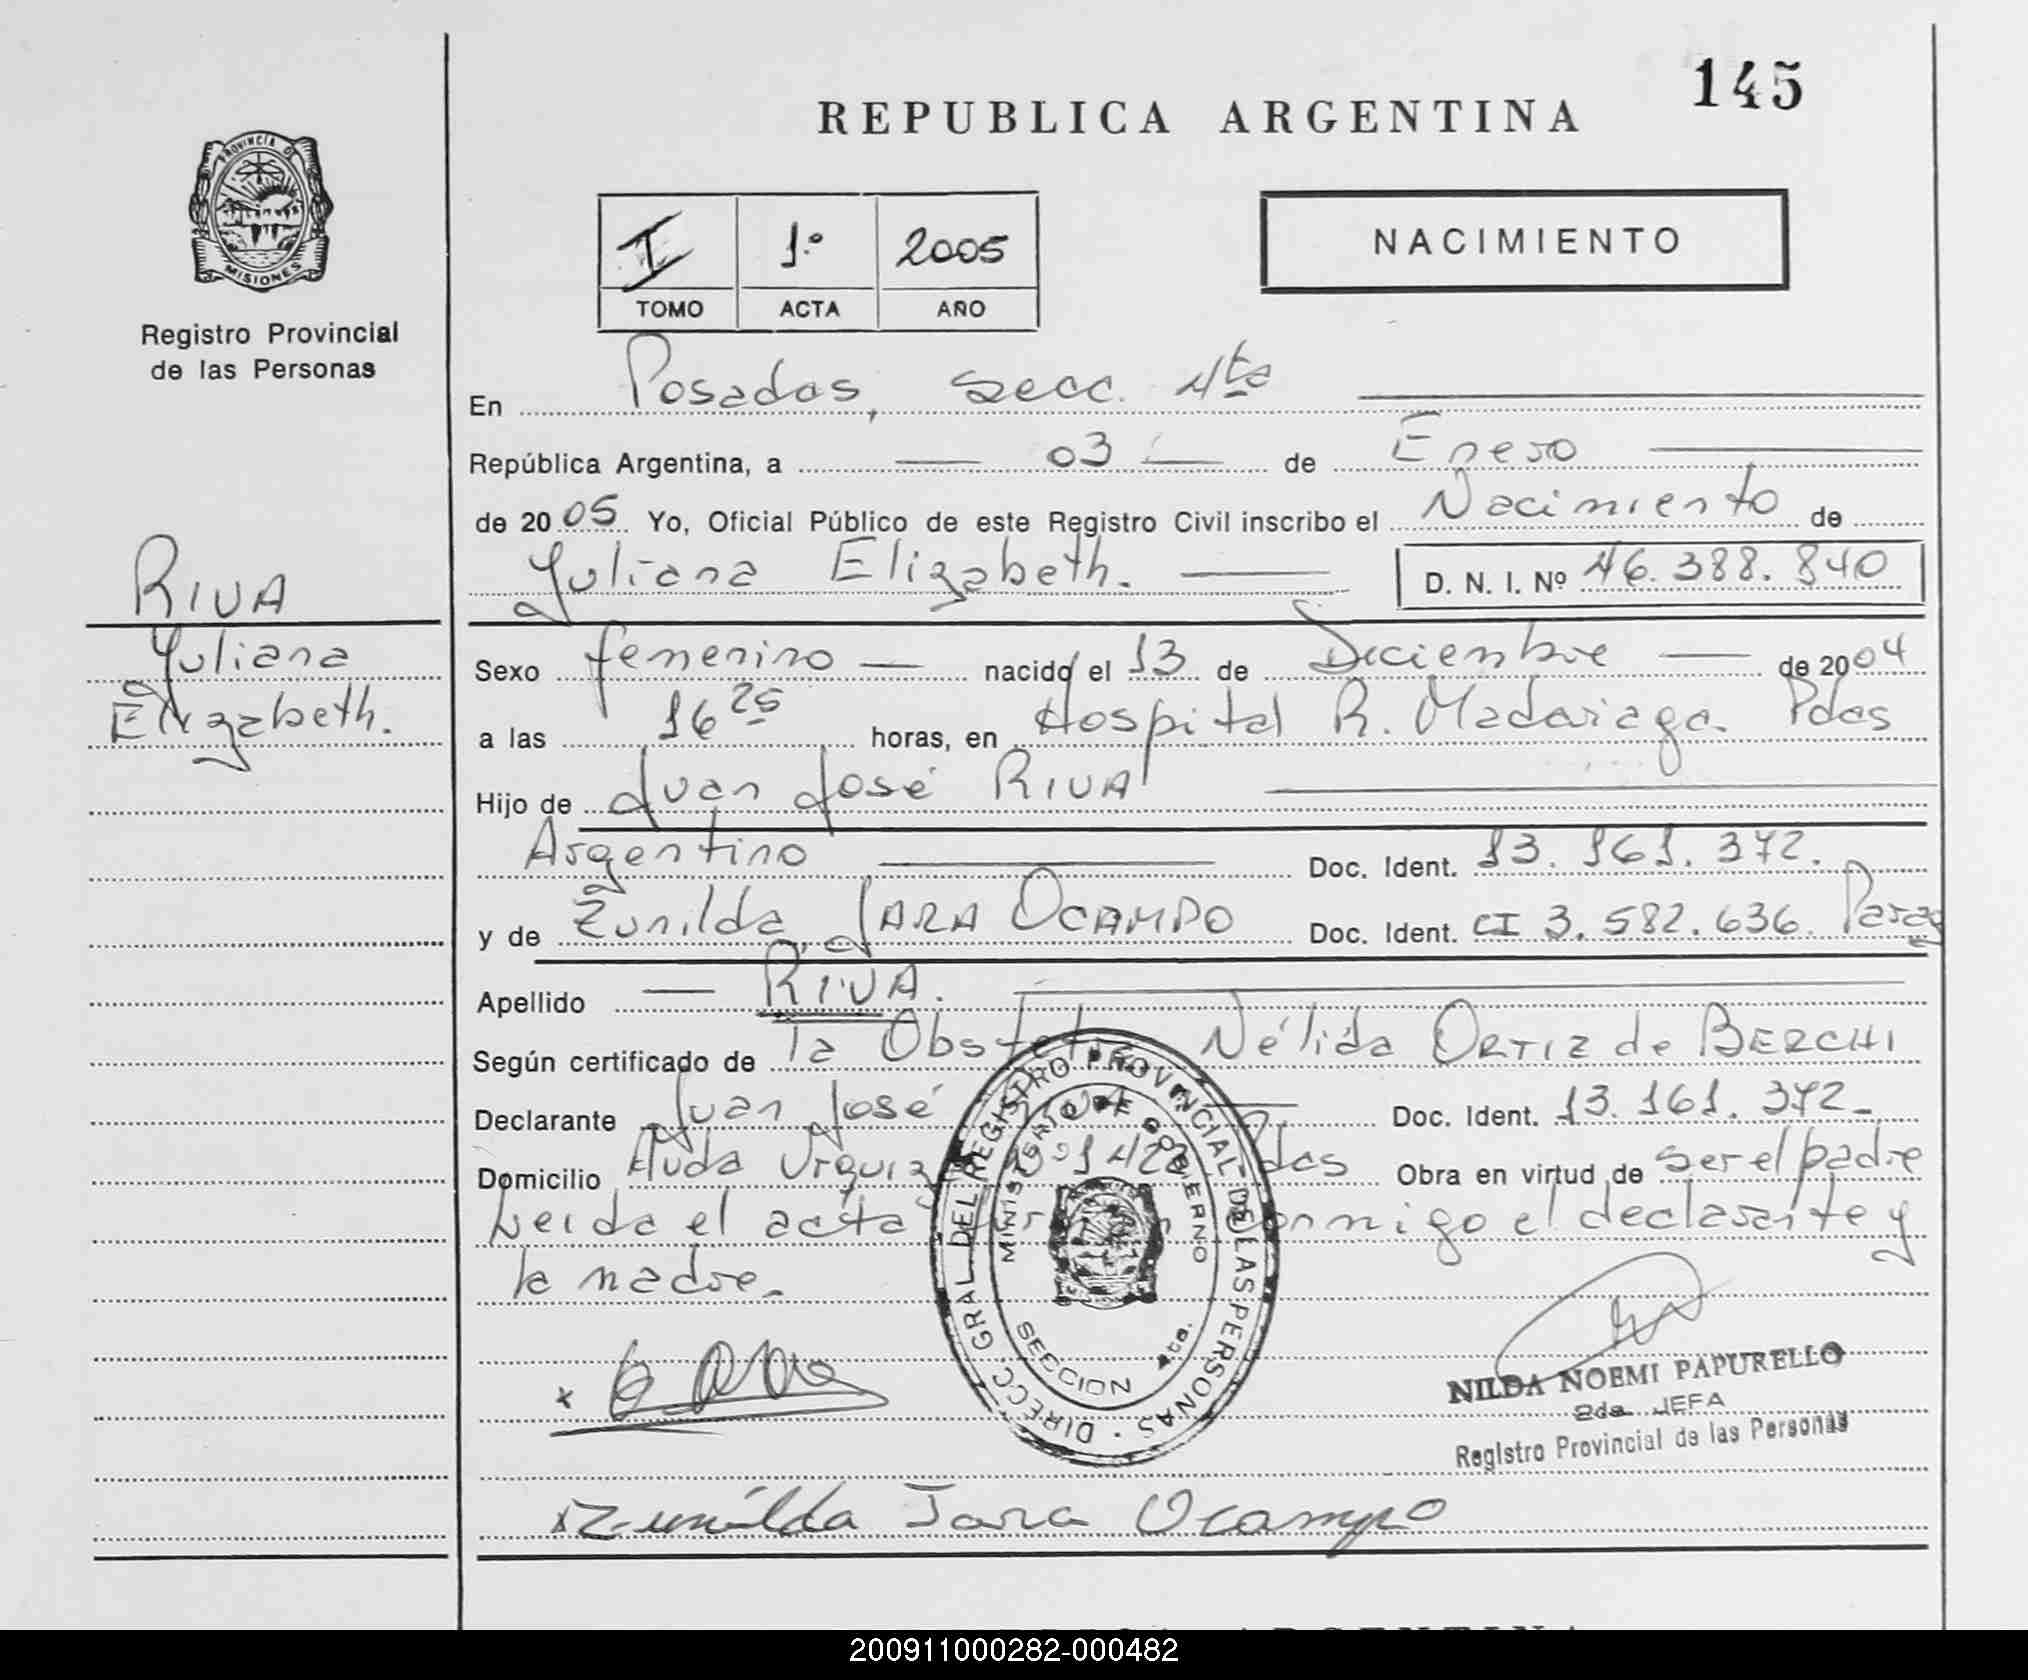 145
REPUBLICA ARGENTINA
PROVINCIA DE
MISIONES
Registro Provincial
de las Personas
I 1.º 2005
TOMO ACTA AÑO
NACIMIENTO
En Posadas, secc. 4ta
República Argentina, a 03 de Enero
de 2005 Yo, Oficial Público de este Registro Civil inscribo el Nacimiento de
Yuliana Elizabeth. D. N. I. Nº 46.388.840
RIVA
Yuliana
Elizabeth.
Sexo femenino nacido el 13 de Diciembre de 2004
a las 16 25 horas, en Hospital R. Madariaga. Pdas
Hijo de Juan José RIVA
Argentino Doc. Ident. 13.161.372.
y de Zunilda JARA OCAMPO Doc. Ident. CI 3.582.636. Parag
Apellido RIVA.
Según certificado de la Nélida ORTIZ de BERCHI
Declarante Juan José Doc. Ident. 13.161.372
Domicilio Avda Urquiza Pdas Obra en virtud de ser el padre
Leida el acta conmigo el declarante y
la madre.
DIRECC. GRAL. DEL REGISTRO PROVINCIAL DE LAS PERSONAS
MINISTERIO DE GOBIERNO
SECCION 4ta.
NILDA NOEMI PAPURELLO
2da. JEFA
Registro Provincial de las Personas
x
x Zunilda Jara Ocampo
200911000282-000482